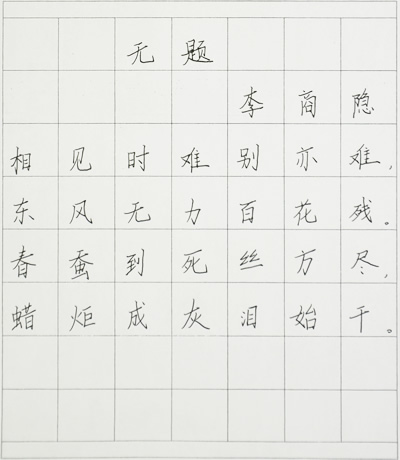 无题
李商隐
相见时难别亦难,
东风无力百花残。
春蚕到死丝方尽,
蜡炬成灰泪始干。